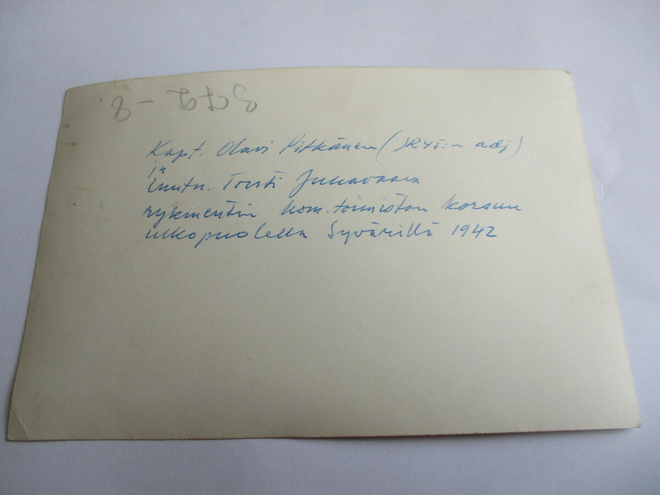 Kapt. Olavi Pitkänen (JR45:n adj)
ja
luutn. Torsti
rykmentin kom.toimiston korsun
ulkopuolella Syvärillä 1942